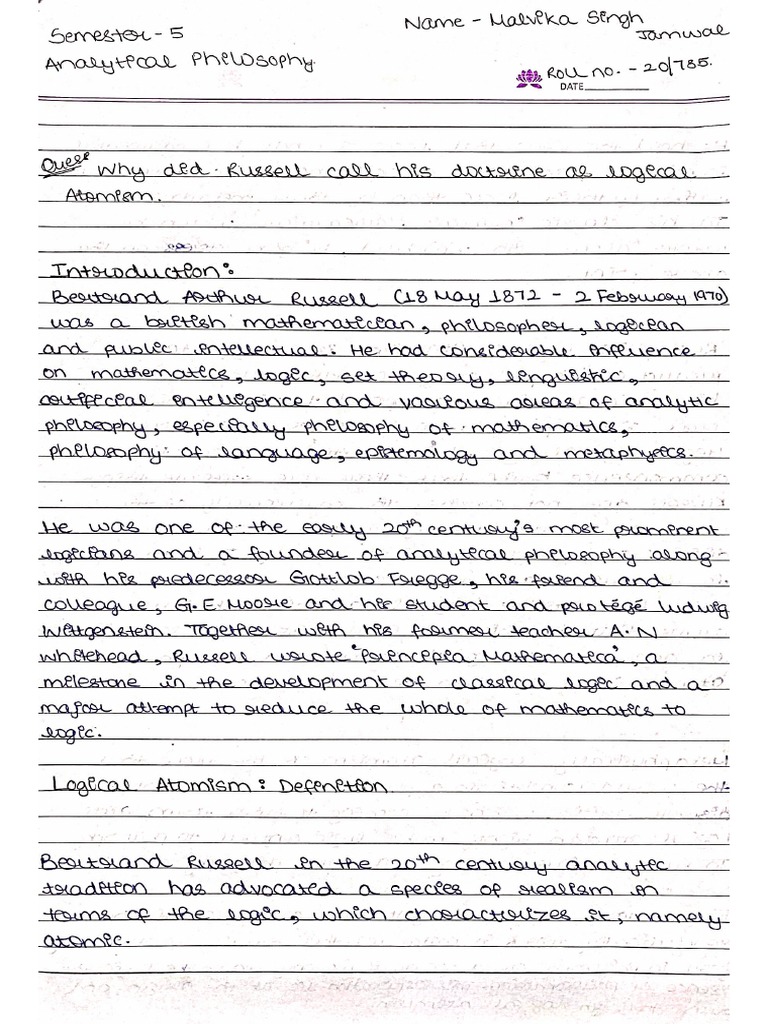 Semester - 5
Name - Malvika Singh
Jamwal
Analytical Philosophy
Roll no. - 20/785.
DATE
Ques Why did Russell call his doctrine as logical
Atomism.
Introduction:
Bertrand Arthur Russell (18 May 1872 - 2 February 1970)
was a british mathematician, philosopher, logician
and public intellectual. He had considerable influence
on mathematics, logic, set theory, linguistic,
artificial intelligence and various areas of analytic
philosophy, especially philosophy of mathematics,
philosophy of language, epistemology and metaphysics.
He was one of the early 20th century's most prominent
logicians and a founder of analytical philosophy along
with his predecessor Gottlob Fregge, his friend and
colleague, G.E Moore and his student and protégé Ludwig
Wittgenstein. Together with his former teacher A.N
Whitehead, Russell wrote 'Principia Mathematica', a
milestone in the development of classical logic and a
major attempt to reduce the whole of mathematics to
logic.
Logical Atomism: Definition
Bertrand Russell in the 20th century analytic
tradition has advocated a species of realism in
terms of the logic, which characterizes it, namely
atomic.